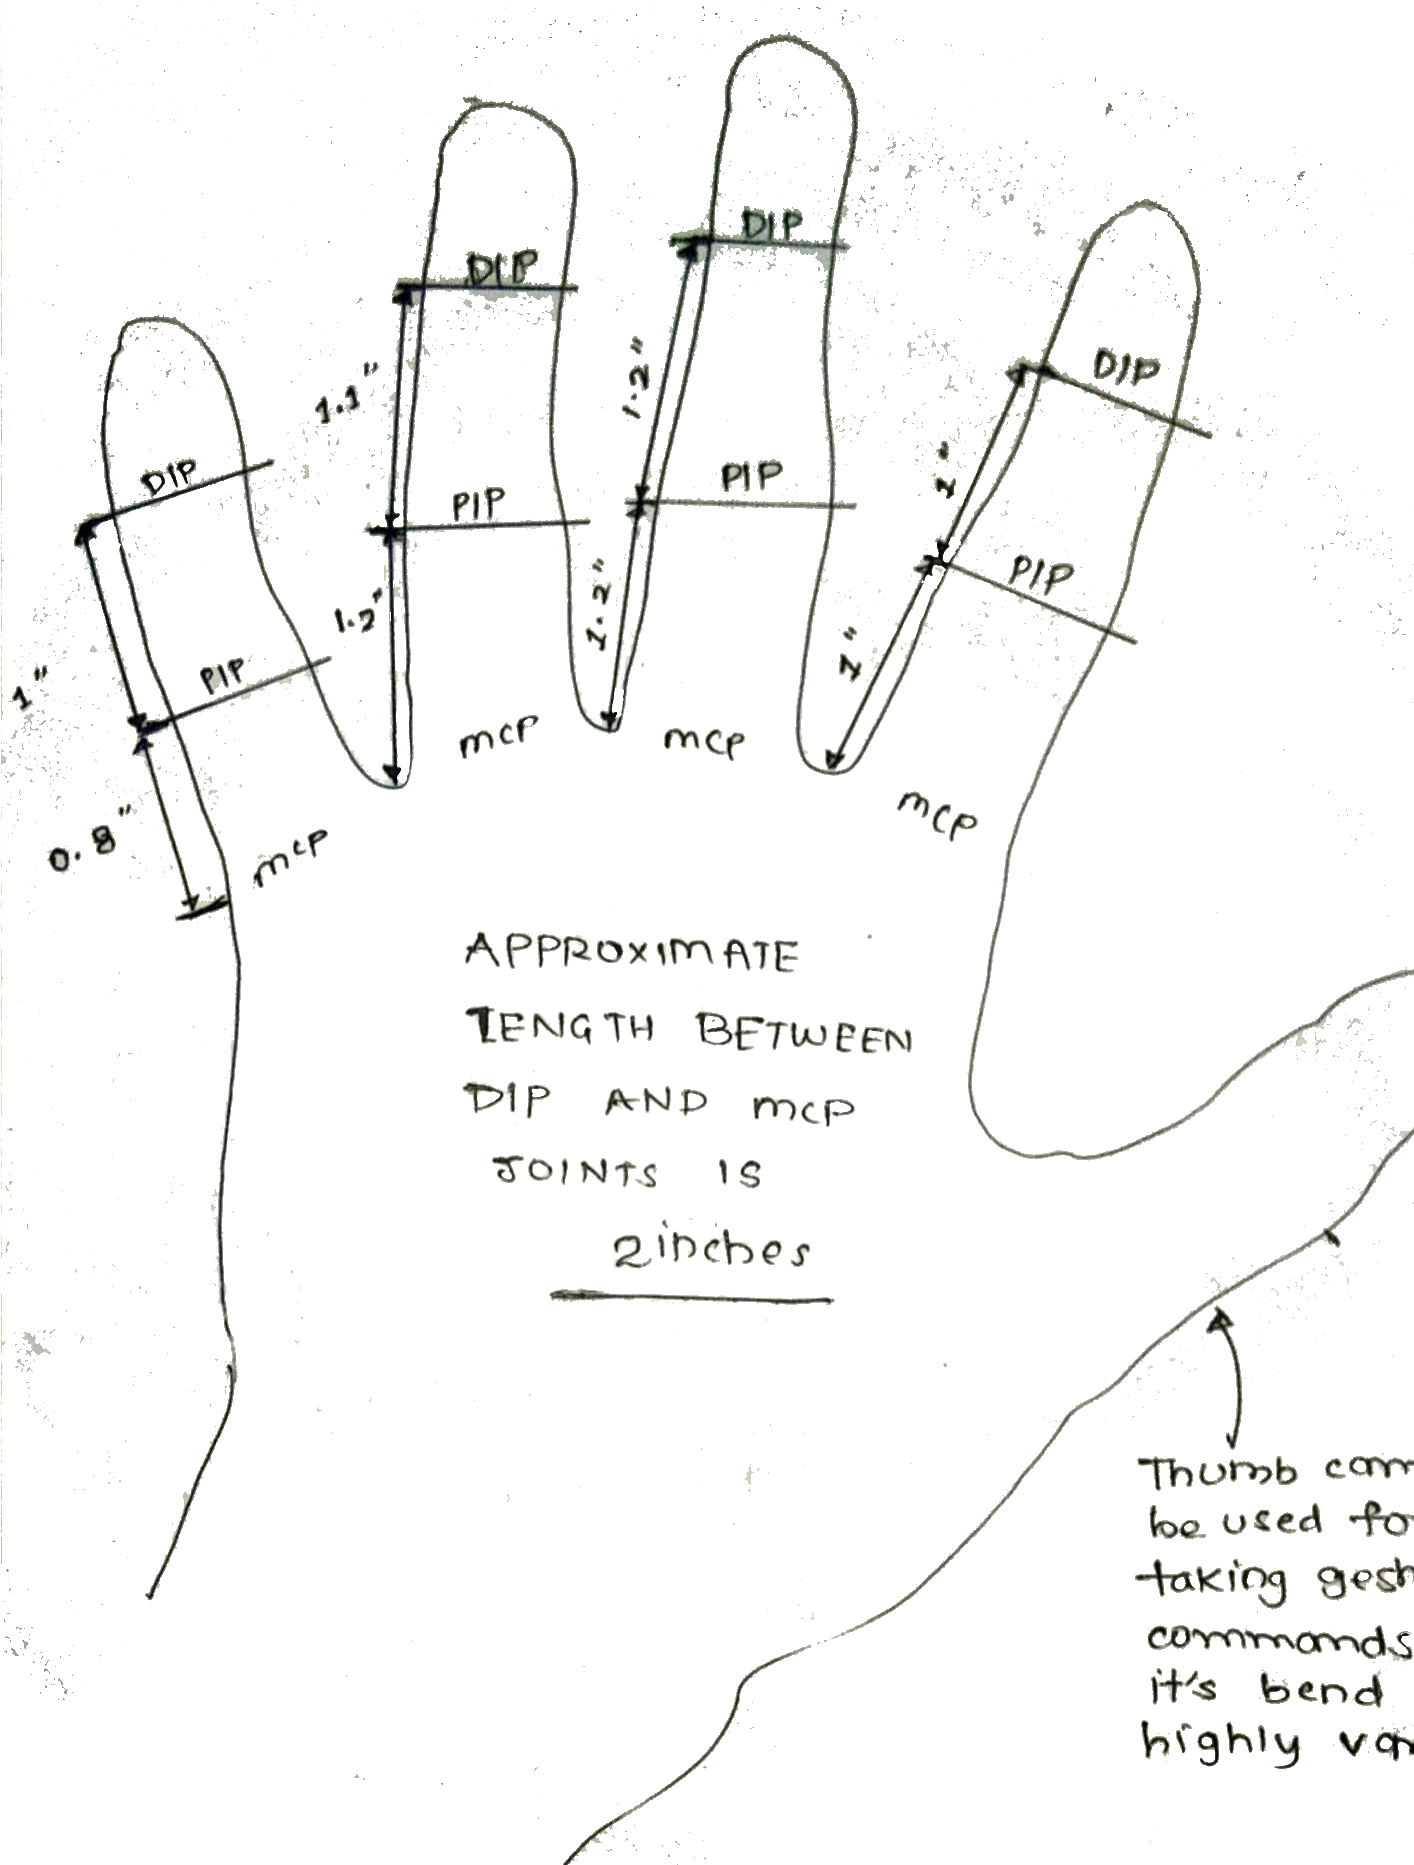 DIP
DIP
1.2"
DIP
1.1"
DIP
DIP
1"
PIP
PIP
PIP
1.2"
1.2"
PIP
1"
PIP
1"
mcp
mcp
mcp
0.8"
mcp
APPROXIMATE
LENGTH BETWEEN
DIP AND mcp
JOINTS IS
2 inches
Thumb
be used
taking
commands
it's bend
highly